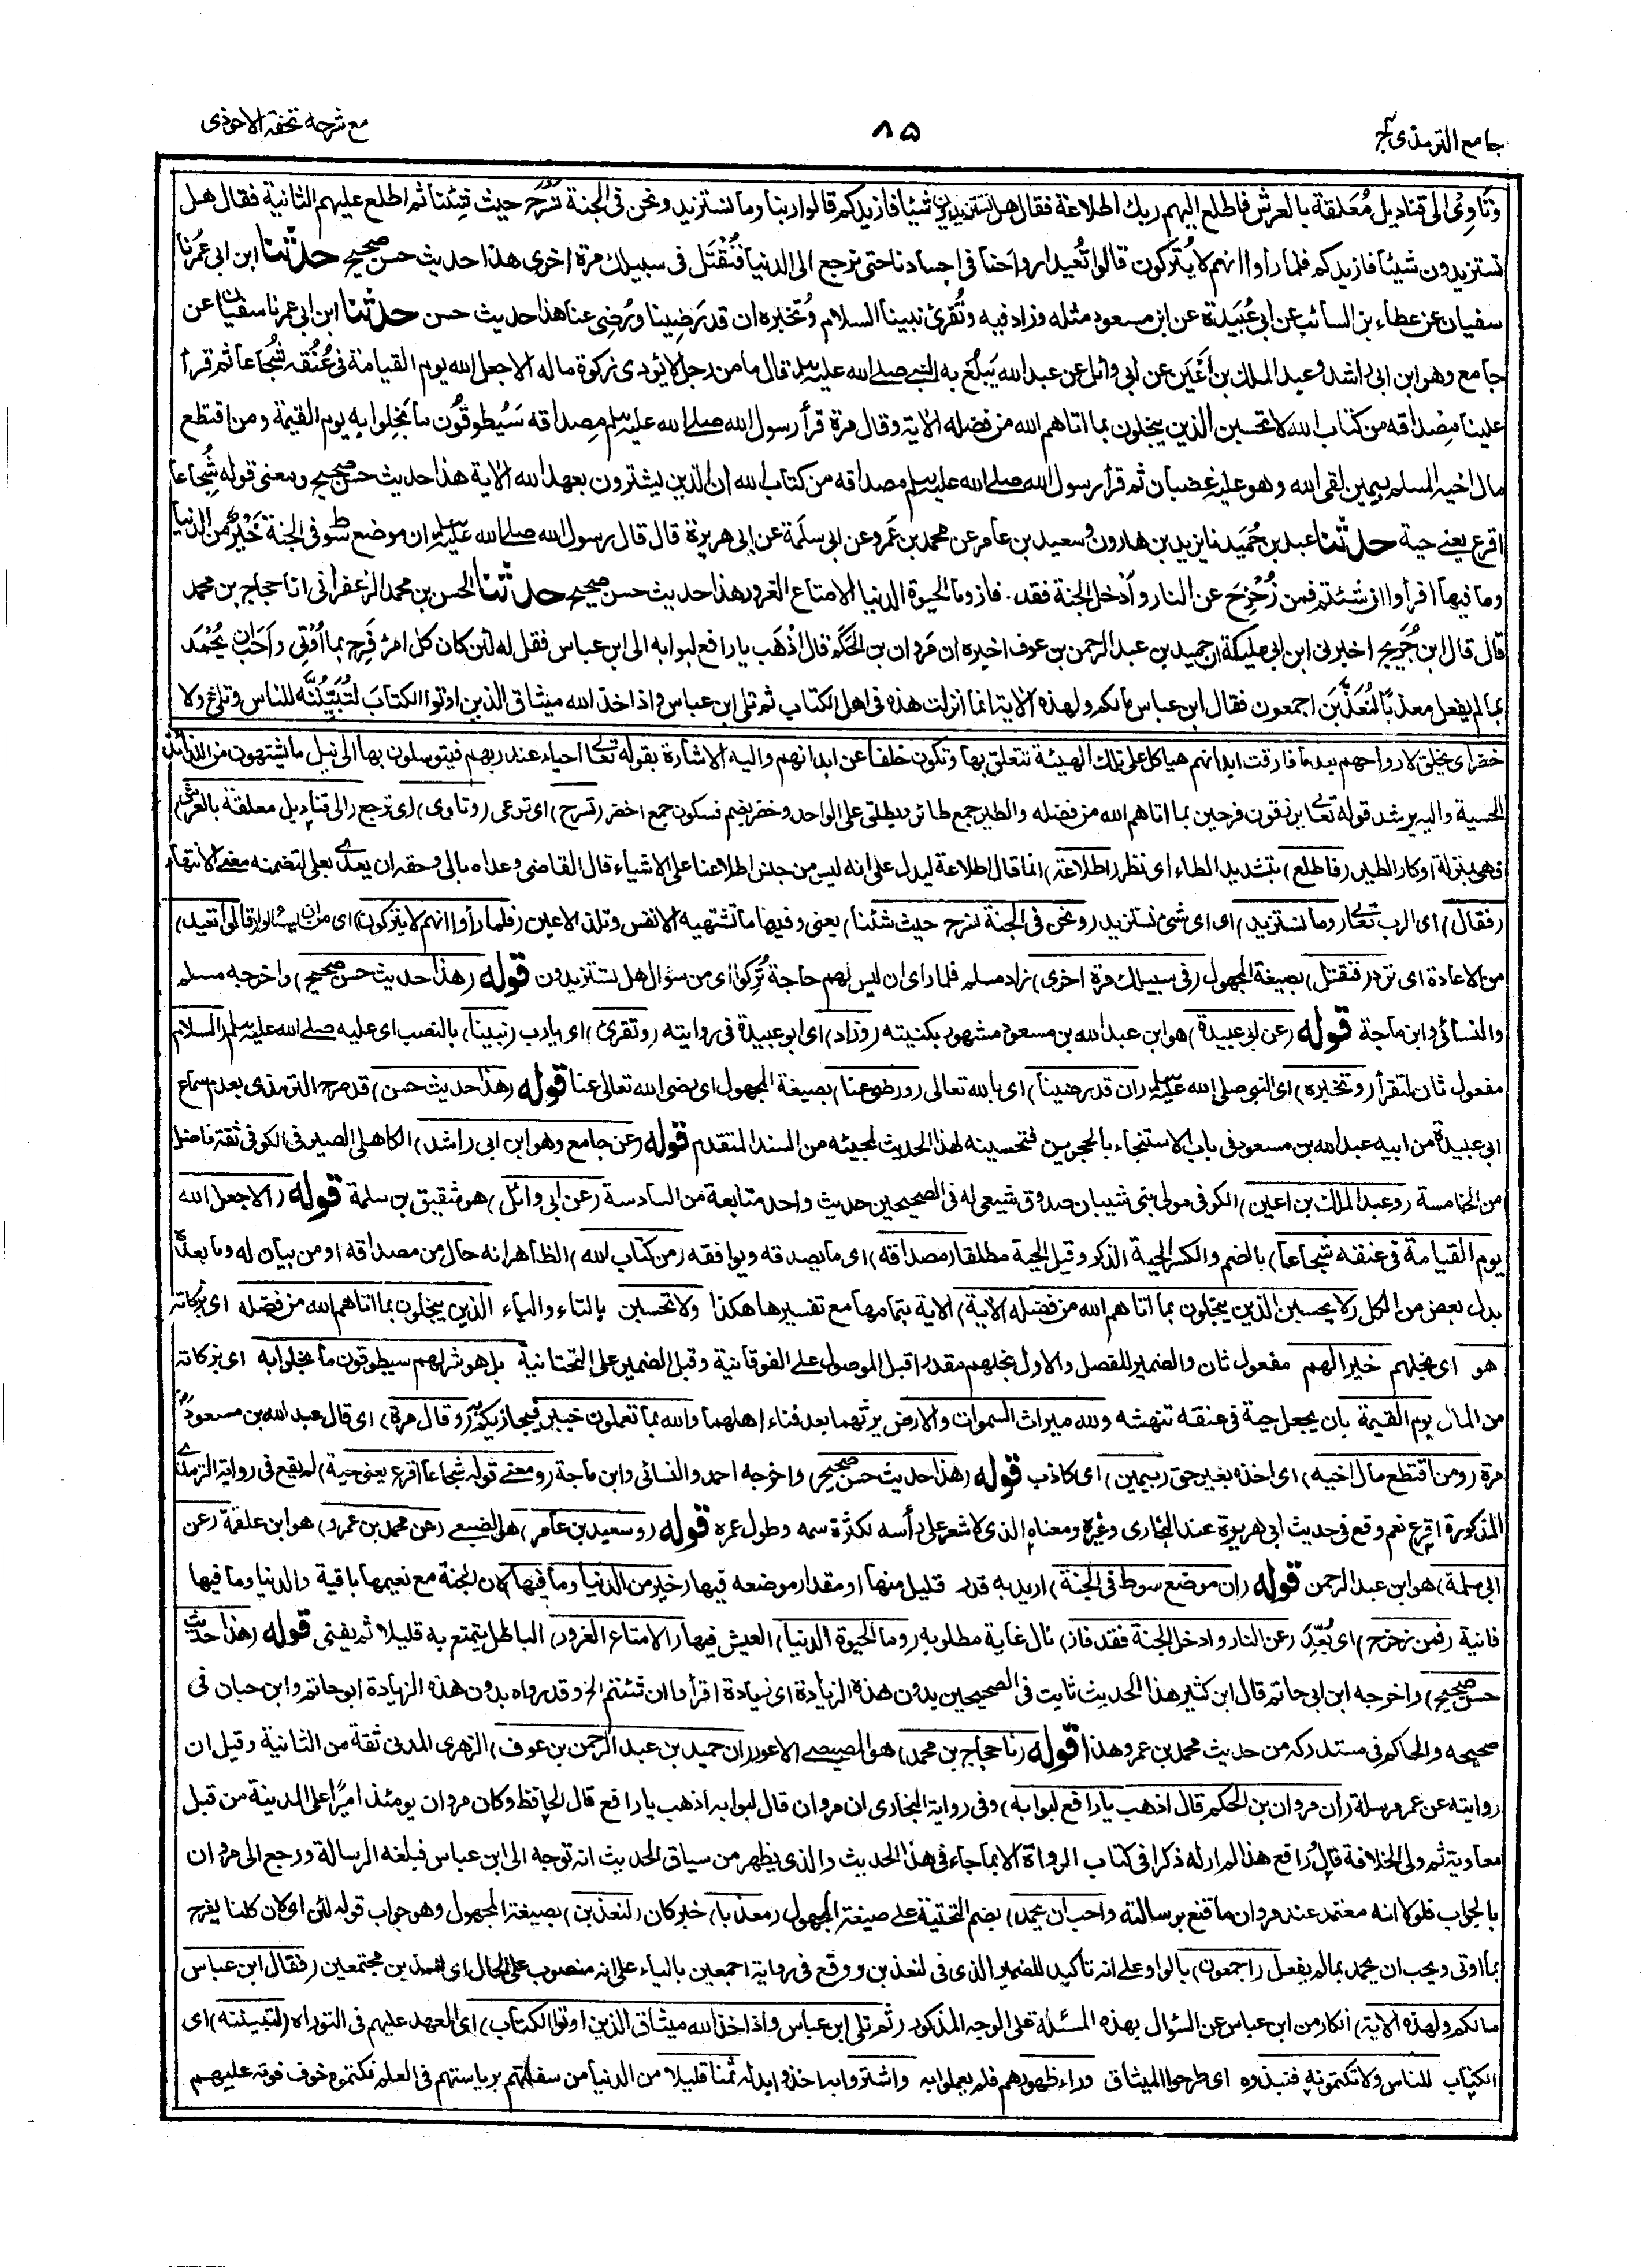 جامع الترمذی ج٤
٨٥
مع شرحه تحفة الاحوذی
وتَأوِیْ الی قنادیل مُعَلقة بالعرش فاطلع الیهم ربك اطلاعة فقال هل تستزیدون شیئا فازیدكم قالوا ربنا وما نستزید ونحن فی الجنة نَسْرَح حیث شِئنا ثم اطلع علیهم الثانیة فقال هل
تستزیدون شیئا فازیدكم فلما رأوا انهم لا یُتْرَكون قالوا تُعید ارواحنا فی اجسادنا حتی نرجع الی الدنیا فَنُقْتَل فی سبیلك مرة اخری هذا حدیث حسن صحیح حدثنا ابن ابی عُمر نا
سفیان عن عطاء بن السائب عن ابی عُبَیدة عن ابن مسعود مثله وزاد فیه وتُقرئ نبینا السلام وتُخبره ان قد رَضِینا ورُضِی عنا هذا حدیث حسن حدثنا ابن ابی عمر نا سفیان عن
جامع وهو ابن ابی راشد وعبد الملك بن اَعْیَن عن ابی وائل عن عبد الله یَبلُغ به النبی صلی الله علیه وسلم قال ما من رجل لا یؤدی زكوة ماله الا جعل الله یوم القیامة فی عُنُقه شُجاعا ثم قرأ
علینا مِصْداقه من كتاب الله لا تحسبن الذین یبخلون بما اتاهم الله من فضله الآیة وقال مرة قرأ رسول الله صلی الله علیه وسلم مِصداقه سَیُطَوقُون ما بَخِلوا به یوم القیمة ومن اقتطع
مال اخیه المسلم بیمین لقی الله وهو علیه غضبان ثم قرأ رسول الله صلی الله علیه وسلم مصداقه من كتاب الله ان الذین یشترون بعهد الله الآیة هذا حدیث حسن صحیح ومعنی قوله شُجاعا
اقرع یعنی حیة حدثنا عبد بن حُمَید نا یزید بن هارون وسعید بن عامر عن محمد بن عَمرو عن ابی سلمة عن ابی هریرة قال قال رسول الله صلی الله علیه وسلم ان موضع سَوط فی الجنة خَیْرٌ من الدنیا
وما فیها اقرأوا ان شئتم فمن زُحْزِحَ عن النار واُدخل الجنة فقد فاز وما الحیوة الدنیا الا متاع الغرور هذا حدیث حسن صحیح حدثنا الحسن بن محمد الزعفرانی انا حجاج بن محمد
قال قال ابن جُرَیج اخبرنی ابن ابی ملیكة ان حمید بن عبد الرحمن بن عوف اخبره ان مَروان بن الحَكَم قال اِذْهَب یا رافع لبوابه الی ابن عباس فقل له لئن كان كل امرئ فَرِح بما اُوْتِی واَحَب ان یُحْمَد
بما لم یفعل معذباً لَنُعَذَّبَن اجمعون فقال ابن عباس مالكم ولهذه الآیة انما انزلت هذه فی اهل الكتاب ثم تلی ابن عباس واذ اخذ الله میثاق الذین اوتوا الكتابَ لَتُبَیِّنُنَّه للناس وتلی ولا
خضر ای یخلق لارواحهم بعد ما فارقت ابدانهم هیاكل علی تلك الهیئة تتعلق بها وتكون خلفا عن ابدانهم والیه الاشارة بقوله تعالی احیاء عند ربهم فیتوسلون بها الی نیل ما یشتهون من اللذائذ
الحسیة والیه یرشد قوله تعالی یرزقون فرحین بما اتاهم الله من فضله والطیر جمع طائر ویطلق علی الواحد وخضر بضم فسكون جمع اخضر (تسرح) ای ترعی (وتاوی) ای ترجع (الی قنادیل معلقة بالعرش)
فهی بمنزلة اوكار الطیر (فاطلع) بتشدید الطاء ای نظر (اطلاعة) انما قال اطلاعة لیدل علی انه لیس من جنس اطلاعنا علی الاشیاء قال القاضی وعداه بالی وحقه ان یعدی بعلی لتضمنه معنی الانتهاء
(فقال) ای الرب تعالی (وما نستزید) ای ای شیء نستزید (ونحن فی الجنة نسرح حیث شئنا) یعنی وفیها ما تشتهیه الانفس وتلذ الاعین (فلما رأوا انهم لا یتركون) ای من ان یسئلوا (قالوا تعید)
من الاعادة ای ترد (فنقتل) بصیغة المجهول (فی سبیلك مرة اخری) زاد مسلم فلما رای ان لیس لهم حاجة تُرِكوا ای من سؤال هل تستزیدون قوله (هذا حدیث حسن صحیح) واخرجه مسلم
والنسائی وابن ماجة قوله (عن ابی عبیدة) هو ابن عبد الله بن مسعود مشهور بكنیته (وزاد) ای ابو عبیدة فی روایته (وتقرئ) ای یا رب (نبینا) بالنصب ای علیه صلی الله علیه وسلم (السلام)
مفعول ثان لتقرأ (وتخبره) ای النبی صلی الله علیه وسلم (ان قد رضینا) ای بالله تعالی (ورضی عنا) بصیغة المجهول ای رضی الله تعالی عنا قوله (هذا حدیث حسن) قد صرح الترمذی بعدم سماع
ابی عبیدة من ابیه عبد الله بن مسعود فی باب الاستنجاء بالحجرین فتحسینه لهذا الحدیث لمجیئه من السند المتقدم قوله (عن جامع وهو ابن ابی راشد) الكاهلی الصیرفی الكوفی ثقة فاضل
من الخامسة (وعبد الملك بن اعین) الكوفی مولی بنی شیبان صدوق شیعی له فی الصحیحین حدیث واحد متابعة من السادسة (عن ابی وائل) هو شقیق بن سلمة قوله (الا جعل الله
یوم القیامة فی عنقه شجاعا) بالضم والكسر الحیة الذكر وقیل الحیة مطلقا (مصداقه) ای ما یصدقه ویوافقه (من كتاب الله) الظاهر انه حال من مصداقه او من بیان له وما بعده
بدل بعض من الكل (لا یحسبن الذین یبخلون بما اتاهم الله من فضله الآیة) الایة بتمامها مع تفسیرها هكذا ولا تحسبن بالتاء والیاء الذین یبخلون بما اتاهم الله من فضله ای بزكاته
هو ای بخلهم خیرا لهم مفعول ثان والضمیر للفصل والاول بخلهم مقدرا قبل الموصول علی الفوقانیة وقبل الضمیر علی التحتانیة بل هو شر لهم سیطوقون ما بخلوا به ای بزكاته
من المال یوم القیمة بان یجعل حیة فی عنقه تنهشه ولله میراث السموات والارض یرثهما بعد فناء اهلهما والله بما تعملون خبیر فیجازیكم (وقال مرة) ای قال عبد الله بن مسعود
مرة (ومن اقتطع مال اخیه) ای اخذه بغیر حق (بیمین) ای كاذب قوله (هذا حدیث حسن صحیح) واخرجه احمد والنسائی وابن ماجة (ومعنی قوله شجاعا اقرع یعنی حیة) لم یقع فی روایة الترمذی
المذكورة اقرع نعم وقع فی حدیث ابی هریرة عند البخاری وغیره ومعناه الذی لا شعر علی رأسه لكثرة سمه وطول عمره قوله (وسعید بن عامر) هو الضبعی (عن محمد بن عمرو) هو ابن علقمة (عن
ابی سلمة) هو ابن عبد الرحمن قوله (ان موضع سوط فی الجنة) ارید به قدر قلیل منها او مقدار موضعه فیها (خیر من الدنیا وما فیها) لان الجنة مع نعیمها باقیة والدنیا وما فیها
فانیة (فمن زحزح) ای بُعِّدَ (عن النار وادخل الجنة فقد فاز) نال غایة مطلوبه (وما الحیوة الدنیا) العیش فیها (الا متاع الغرور) الباطل یتمتع به قلیلا ثم یفنی قوله (هذا حدیث
حسن صحیح) واخرجه ابن ابی حاتم قال ابن كثیر هذا الحدیث ثابت فی الصحیحین بدون هذه الزیادة ای زیادة اقرأوا ان شئتم الخ وقد رواه بدون هذه الزیادة ابو حاتم وابن حبان فی
صحیحه والحاكم فی مستدركه من حدیث محمد بن عمرو هذا قوله (نا حجاج بن محمد) هو المصیصی الاعور (ان حمید بن عبد الرحمن بن عوف) الزهری المدنی ثقة من الثانیة وقیل ان
روایته عن عمر مرسلة (ان مروان بن الحكم قال اذهب یا رافع لبوابه) وفی روایة البخاری ان مروان قال لبوابه اذهب یا رافع قال الحافظ وكان مروان یومئذ امیرًا علی المدینة من قبل
معاویة ثم ولی الخلافة قال ورافع هذا لم ار له ذكرا فی كتاب الرواة الا بما جاء فی هذا الحدیث والذی یظهر من سیاق الحدیث انه توجه الی ابن عباس فبلغه الرسالة ورجع الی مروان
بالجواب فلولا انه معتمد عند مروان ما قنع برسالته (واحب ان یحمد) بضم التحتیة علی صیغة المجهول (معذبا) خبر كان (لنعذبن) بصیغة المجهول وهو جواب قوله لئن ای لان كلنا یفرح
بما اوتی ویحب ان یحمد بما لم یفعل (اجمعون) بالواو علی انه تاكید للضمیر الذی فی لنعذبن ووقع فی روایة اجمعین بالیاء علی انه منصوب علی الحال ای لنعذبن مجتمعین (فقال ابن عباس
مالكم ولهذه الآیة) انكار من ابن عباس عن السؤال بهذه المسئلة علی الوجه المذكور (ثم تلی ابن عباس واذ اخذ الله میثاق الذین اوتوا الكتاب) ای العهد علیهم فی التوراه (لتبیننه) ای
الكتاب للناس ولا تكتمونه فنبذوه ای طرحوا المیثاق وراء ظهورهم فلم یعملوا به واشتروا به اخذوا بدله ثمنا قلیلا من الدنیا من سفلتهم بریاستهم فی العلم فكتموه خوف فوته علیهم